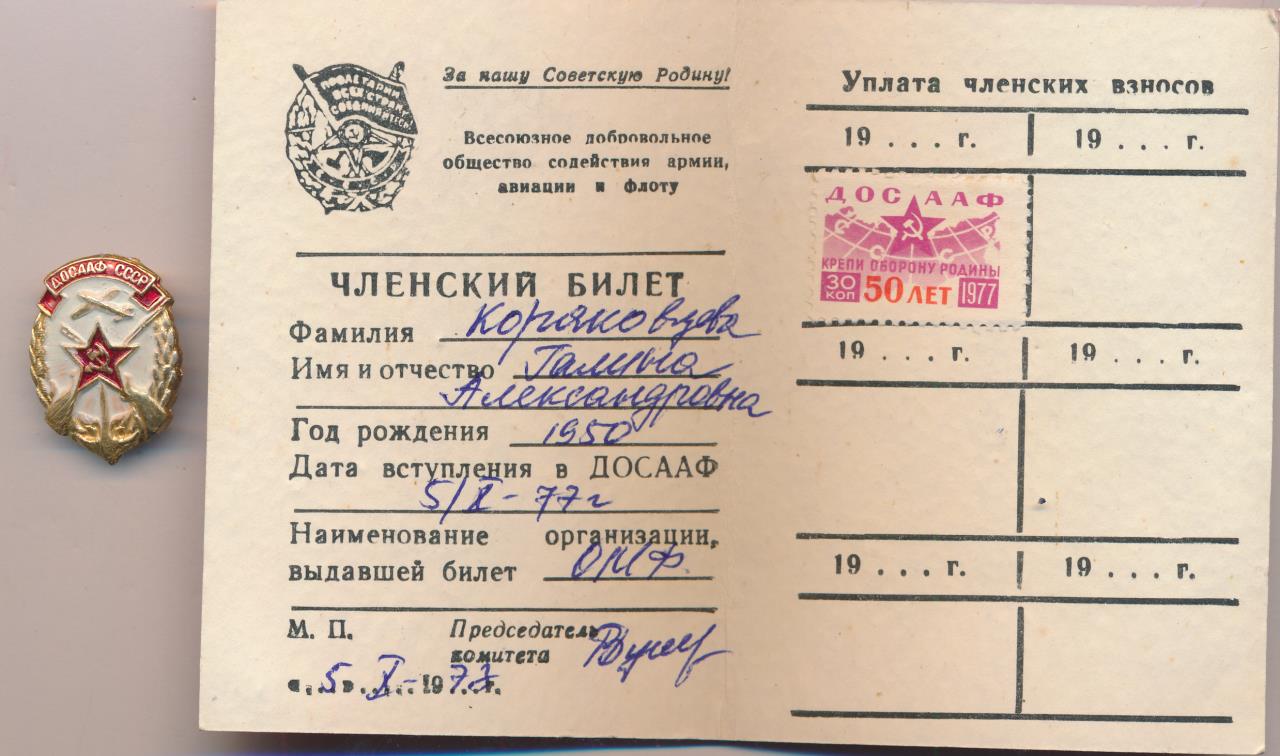 ДОСААФ СССР
ПРОЛЕТАРИИ
ВСЕХ СТРАН
СОЕДИНЯЙТЕСЬ
За нашу Советскую Родину!
Всесоюзное добровольное
общество содействия армии,
авиации и флоту
ЧЛЕНСКИЙ БИЛЕТ
Фамилия Коряковцева
Имя и отчество Галина
Александровна
Год рождения 1950
Дата вступления в ДОСААФ
5/X-77г
Наименование организации,
выдавшей билет ОМФ.
М. П. Председатель
комитета
«5» X- 1977 г.
Уплата членских взносов
19 . . . г. 19 . . . г.
ДОСААФ
КРЕПИ ОБОРОНУ РОДИНЫ
30 КОП 50 ЛЕТ 1977
19 . . . г. 19 . . . г.
19 . . . г. 19 . . . г.